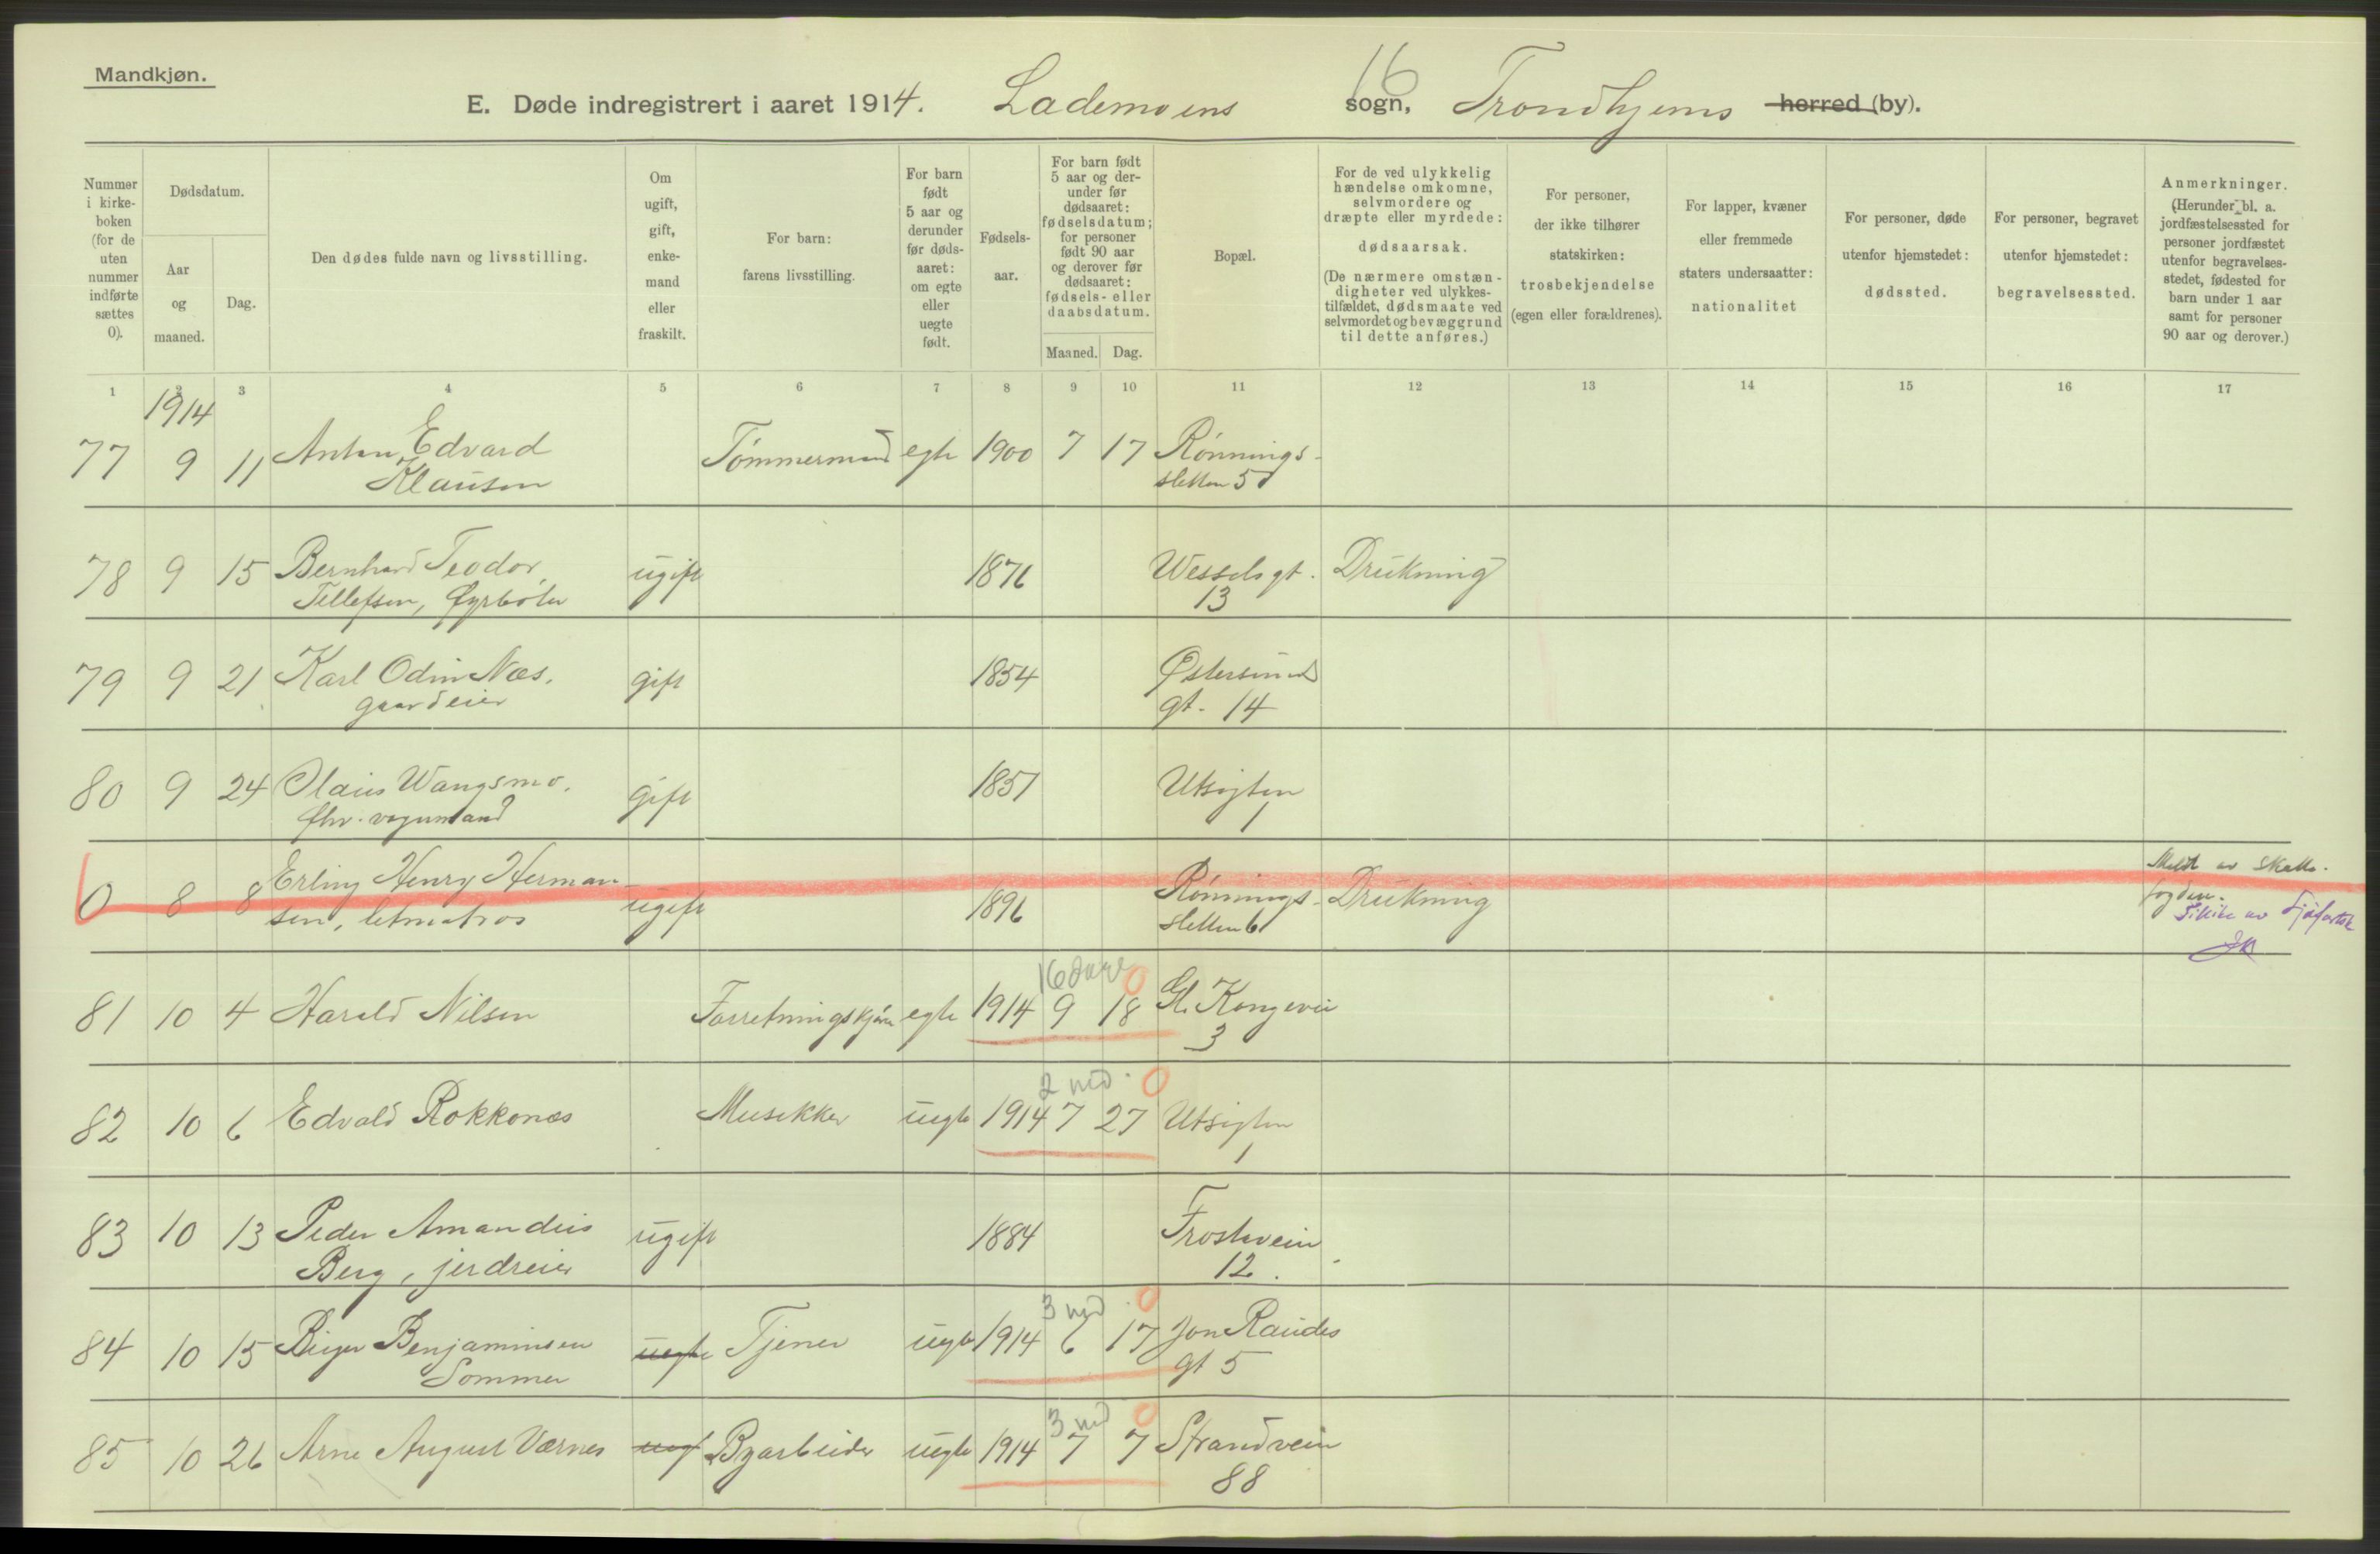 Mandkjøn.
16
E. Døde indregistrert i aaret 1914. Lademoens sogn, Trondhjems herred (by).
Nummer i kirke-boken (for de uten nummer indførte sættes 0).
Dødsdatum.
Aar og maaned.
Dag.
Den dødes fulde navn og livsstilling.
Om ugift, gift, enke-mand eller fraskilt.
For barn: farens livsstilling.
For barn født 5 aar og derunder før døds-aaret: om egte eller uegte født.
Fødsels-aar.
For barn født 5 aar og der-under før dødsaaret: fødselsdatum; for personer født 90 aar og derover før dødsaaret: fødsels- eller daabsdatum.
Maaned. Dag.
Bopæl.
For de ved ulykkelig hændelse omkomne, selvmordere og dræpte eller myrdede: dødsaarsak. (De nærmere omstæn-digheter ved ulykkes-tilfældet, dødsmaate ved selvmordet og bevæggrund til dette anføres.)
For personer, der ikke tilhører statskirken: trosbekjendelse (egen eller forældrenes).
For lapper, kvæner eller fremmede staters undersaatter: nationalitet
For personer, døde utenfor hjemstedet: dødssted.
For personer, begravet utenfor hjemstedet: begravelsessted.
Anmerkninger. (Herunder bl. a. jordfæstelsessted for personer jordfæstet utenfor begravelses-stedet, fødested for barn under 1 aar samt for personer 90 aar og derover.)
1 2 3 4 5 6 7 8 9 10 11 12 13 14 15 16 17
1914
77 9 11 Anton Edvard Tømmermand egte 1900 7 17 Rønnings-
Klausen sletten 5
78 9 15 Bernhard Teodor ugift 1876 Wessels gt. Drukning
Tellefsen, fyrbøter 13
79 9 21 Karl Odin Næs, gift 1854 Østersunds
gaardeier gt. 14
80 9 24 Olaus Wangsmo, gift 1851 Utsigten
fhv. vognmand 1
0 8 8 Erling Henry Herman- ugift 1896 Rønnings- Drukning Meldt av skatte-
sen, letmatros sletten 6 fogden.
16 dage 0
81 10 4 Harald Nilsen Forretningskjører egte 1914 9 18 Gl. Kongevei
3
2 md. 0
82 10 6 Edvald Rokkonæs Musikker uegte 1914 7 27 Utsigten
1
83 10 13 Peder Amandus ugift 1884 Frostavein
Berg, jerdreier 12.
3 md. 0
84 10 15 Birger Benjaminsen uegte Tjener uegte 1914 6 17 Jon Raudes
Sommer gt 5
3 md 0
85 10 26 Arne August Værnes uegt Byarbeider uegte 1914 7 7 Strandvein
88